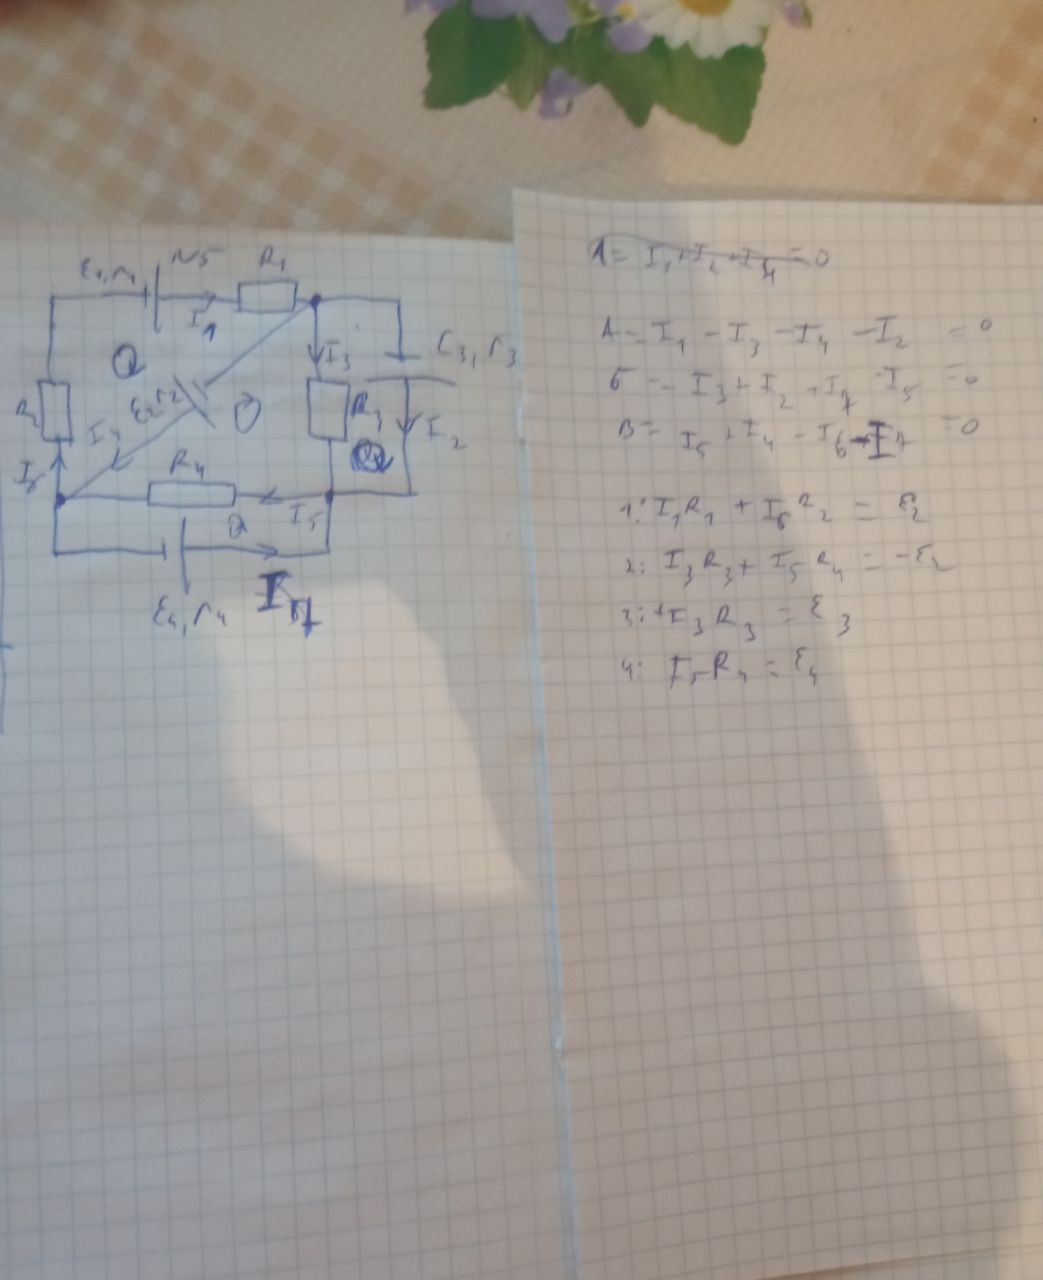 ε₁, r₁ N5 R₁
I₁
I₃ ε₃, r₃
ε₂ r₂
R₂ R₃
I₄ I₂
R₄
I₆ I₅
I₇
ε₄, r₄
A = I₁ + I₂ + I₄ = 0
A = I₁ - I₃ - I₄ - I₂ = 0
Б = I₃ + I₂ + I₇ - I₅ = 0
B = I₅ + I₄ - I₆ - I₇ = 0
1: I₁R₁ + I₆R₂ = ε₂
2: I₃R₃ + I₅R₄ = -ε₂
3: +I₃R₃ = ε₃
4: I₅R₄ = ε₄